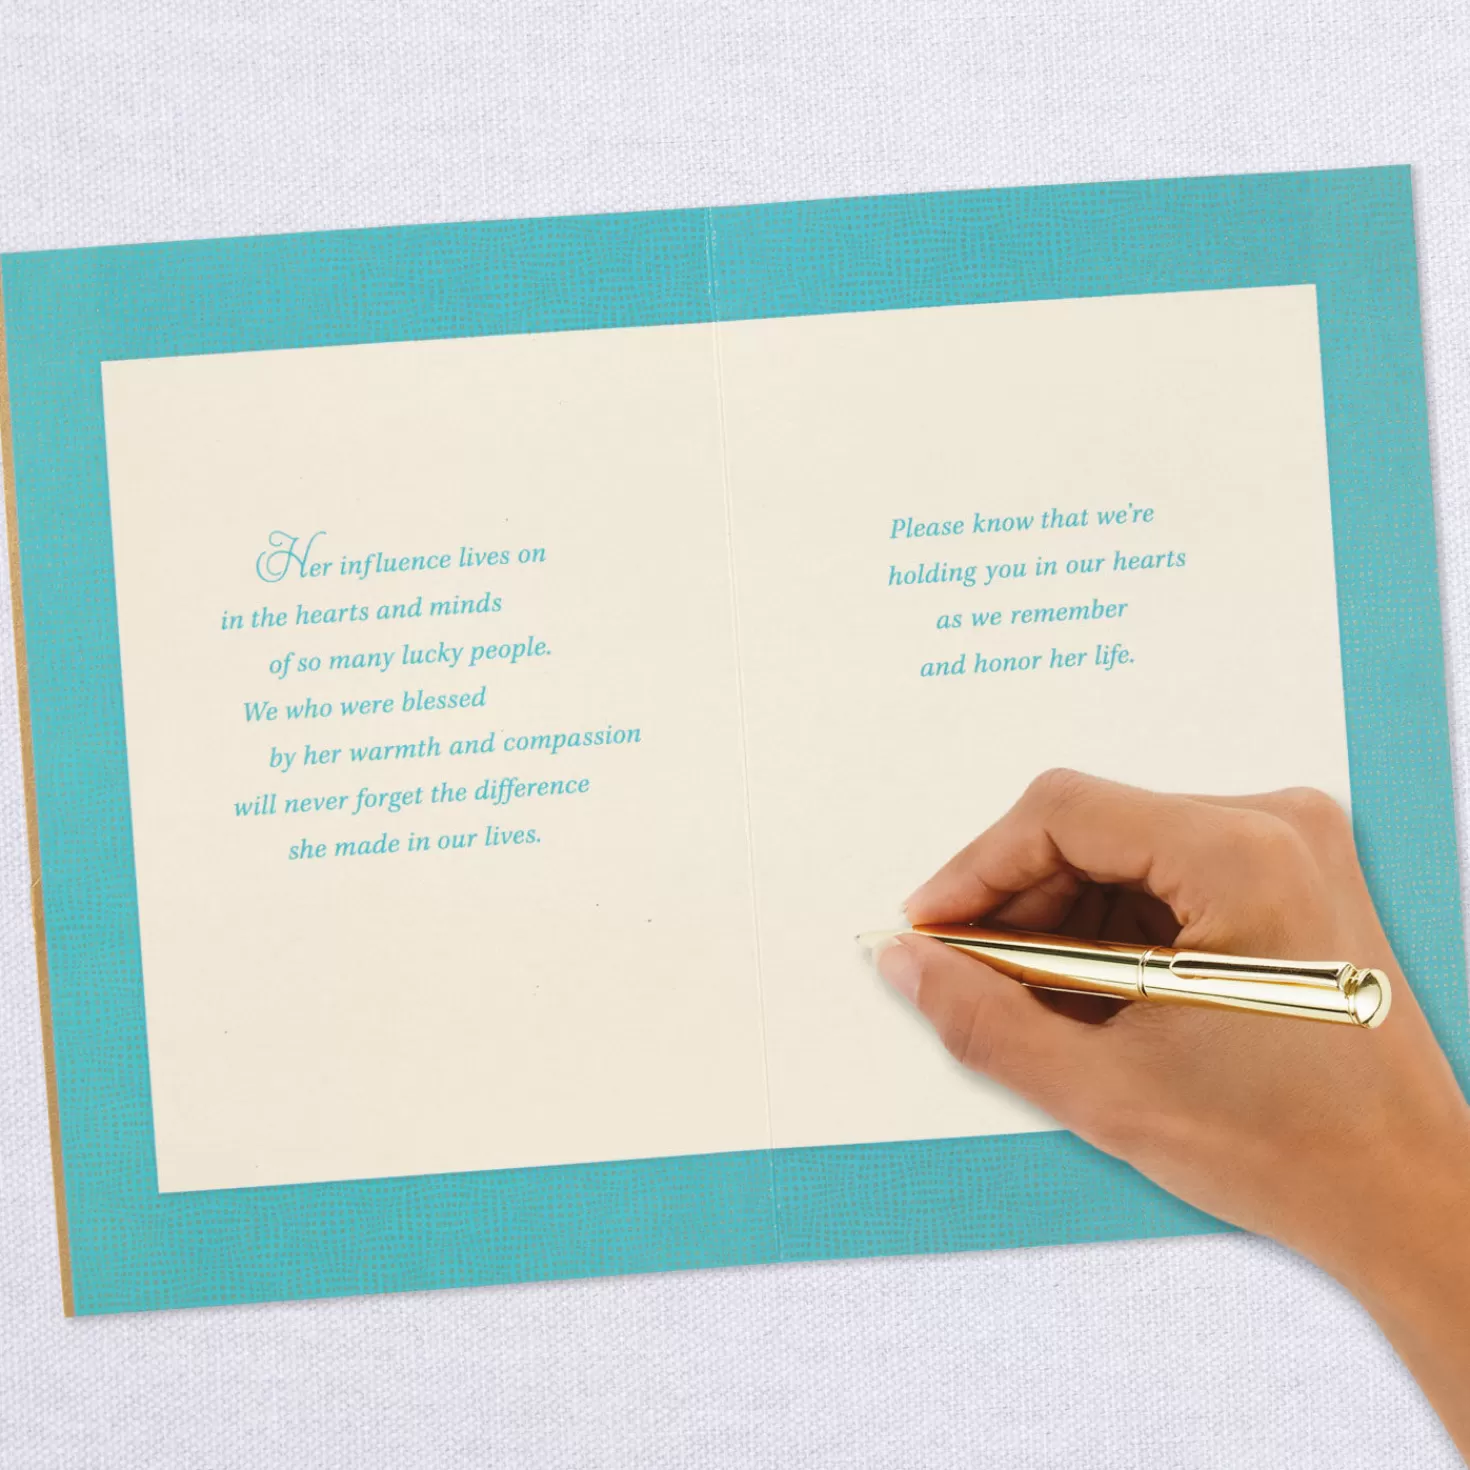 Her influence lives on
in the hearts and minds
of so many lucky people.
We who were blessed
by her warmth and compassion
will never forget the difference
she made in our lives.
Please know that we're
holding you in our hearts
as we remember
and honor her life.